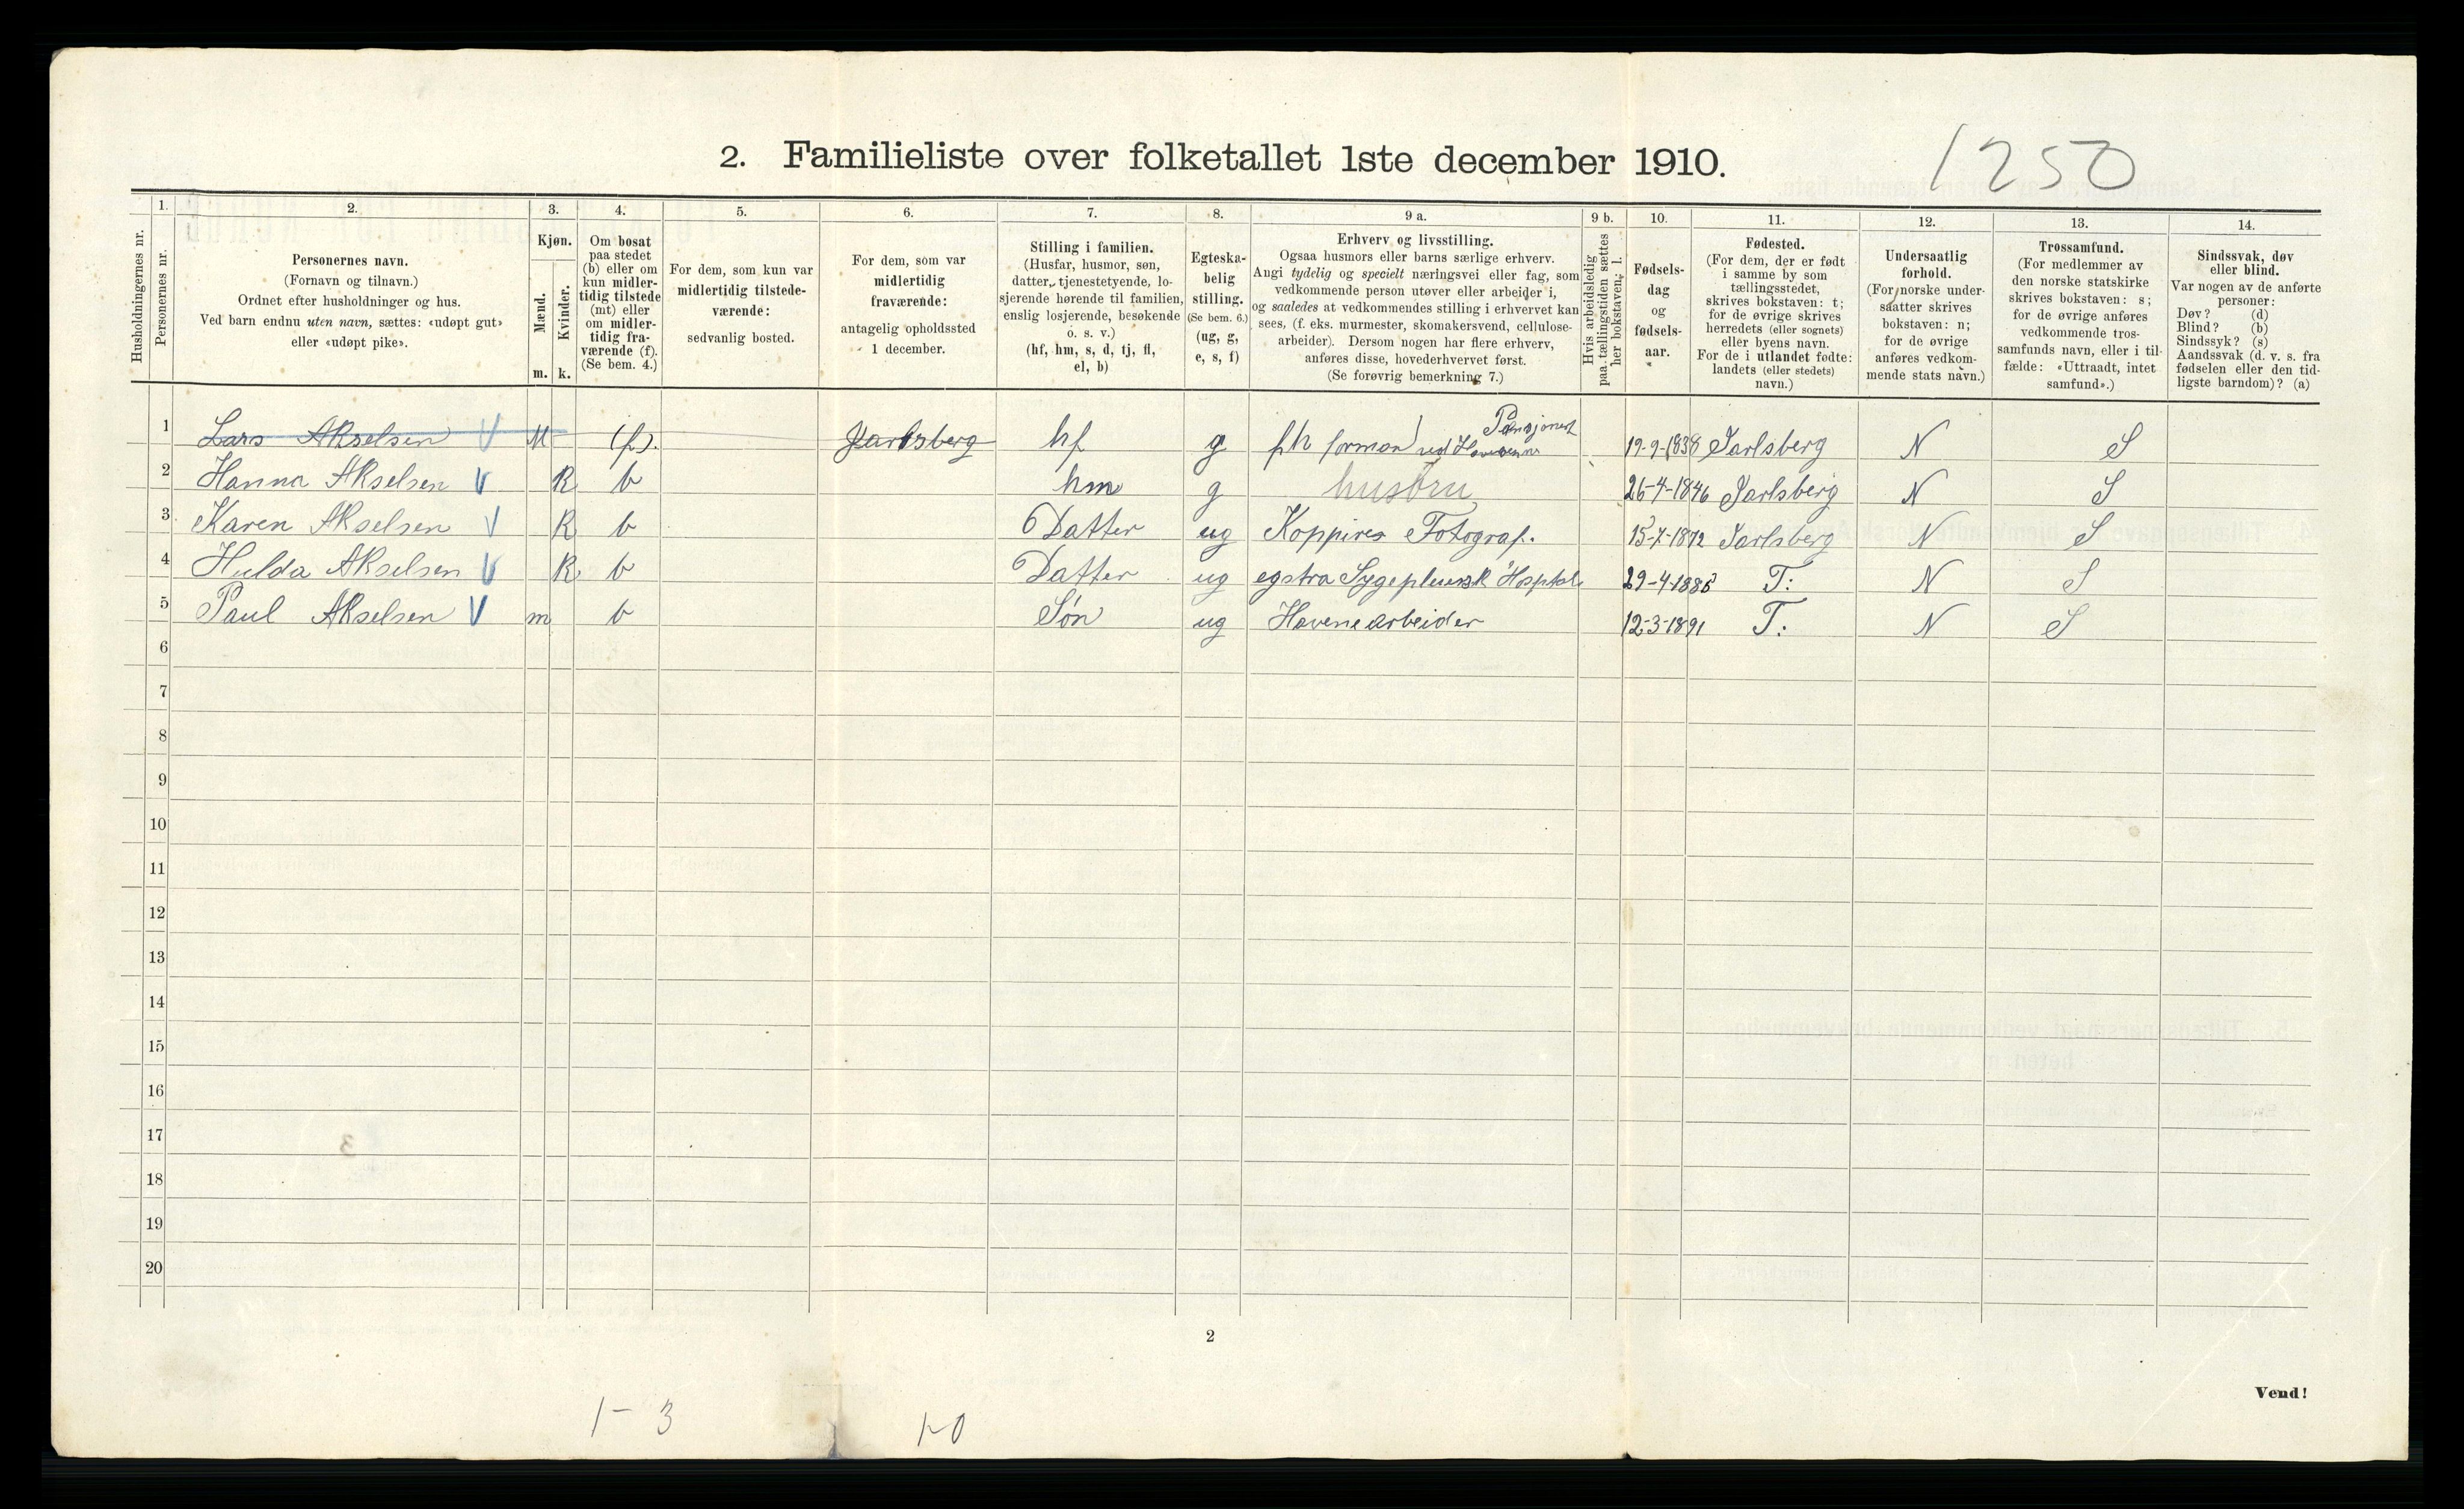 2. Familieliste over folketallet 1ste december 1910.
1250
Husholdningernes nr.
1.
Personernes nr.
2.
Personernes navn.
(Fornavn og tilnavn.)
Ordnet efter husholdninger og hus.
Ved barn endnu uten navn, sættes: «udøpt gut»
eller «udøpt pike».
3.
Kjøn.
Mænd.
m.
Kvinder.
k.
4.
Om bosat
paa stedet
(b) eller om
kun midler-
tidig tilstede
(mt) eller
om midler-
tidig fra-
værende (f).
(Se bem. 4.)
5.
For dem, som kun var
midlertidig tilstede-
værende:
sedvanlig bosted.
6.
For dem, som var
midlertidig
fraværende:
antagelig opholdssted
1 december.
7.
Stilling i familien.
(Husfar, husmor, søn,
datter, tjenestetyende, lo-
sjerende hørende til familien,
enslig losjerende, besøkende
o. s. v.)
(hf, hm, s, d, tj, fl,
el, b)
8.
Egteska-
belig
stilling.
(Se bem. 6.)
(ug, g,
e, s, f)
9 a.
Erhverv og livsstilling.
Ogsaa husmors eller barns særlige erhverv.
Angi tydelig og specielt næringsvei eller fag, som
vedkommende person utøver eller arbeider i,
og saaledes at vedkommendes stilling i erhvervet kan
sees, (f. eks. murmester, skomakersvend, cellulose-
arbeider). Dersom nogen har flere erhverv,
anføres disse, hovederhvervet først.
(Se forøvrig bemerkning 7.)
9 b.
Hvis arbeidsledig
paa tællingstiden sættes
her bokstaven: l.
10.
Fødsels-
dag
og
fødsels-
aar.
11.
Fødested.
(For dem, der er født
i samme by som
tællingsstedet,
skrives bokstaven: t;
for de øvrige skrives
herredets (eller sognets)
eller byens navn.
For de i utlandet fødte:
landets (eller stedets)
navn.)
12.
Undersaatlig
forhold.
(For norske under-
saatter skrives
bokstaven: n;
for de øvrige
anføres vedkom-
mende stats navn.)
13.
Trossamfund.
(For medlemmer av
den norske statskirke
skrives bokstaven: s;
for de øvrige anføres
vedkommende tros-
samfunds navn, eller i til-
fælde: «Uttraadt, intet
samfund».)
14.
Sindssvak, døv
eller blind.
Var nogen av de anførte
personer:
Døv? (d)
Blind? (b)
Sindssyk? (s)
Aandssvak (d. v. s. fra
fødselen eller den tid-
ligste barndom)? (a)
1 Lars Akselsen V M (f). Jarlsberg hf g fh forman ved Pensjonert 19-9-1838 Jarlsberg N S
2 Hanna Akselsen V K b hm g husbru 26-4-1846 Jarlsberg N S
3 Karen Akselsen V K b Datter ug Koppires Fotograf. 15-7-1872 Jarlsberg N S
4 Hulda Akselsen V K b Datter ug egstra Hospital 29-4-1885 T: N S
5 Paul Akselsen V m b Søn ug Havenearbeider 12-3-1891 T: N S
6
7
8
9
10
11
12
13
14
15
16
17
18
19
20
2
Vend!
1- 3
1-0